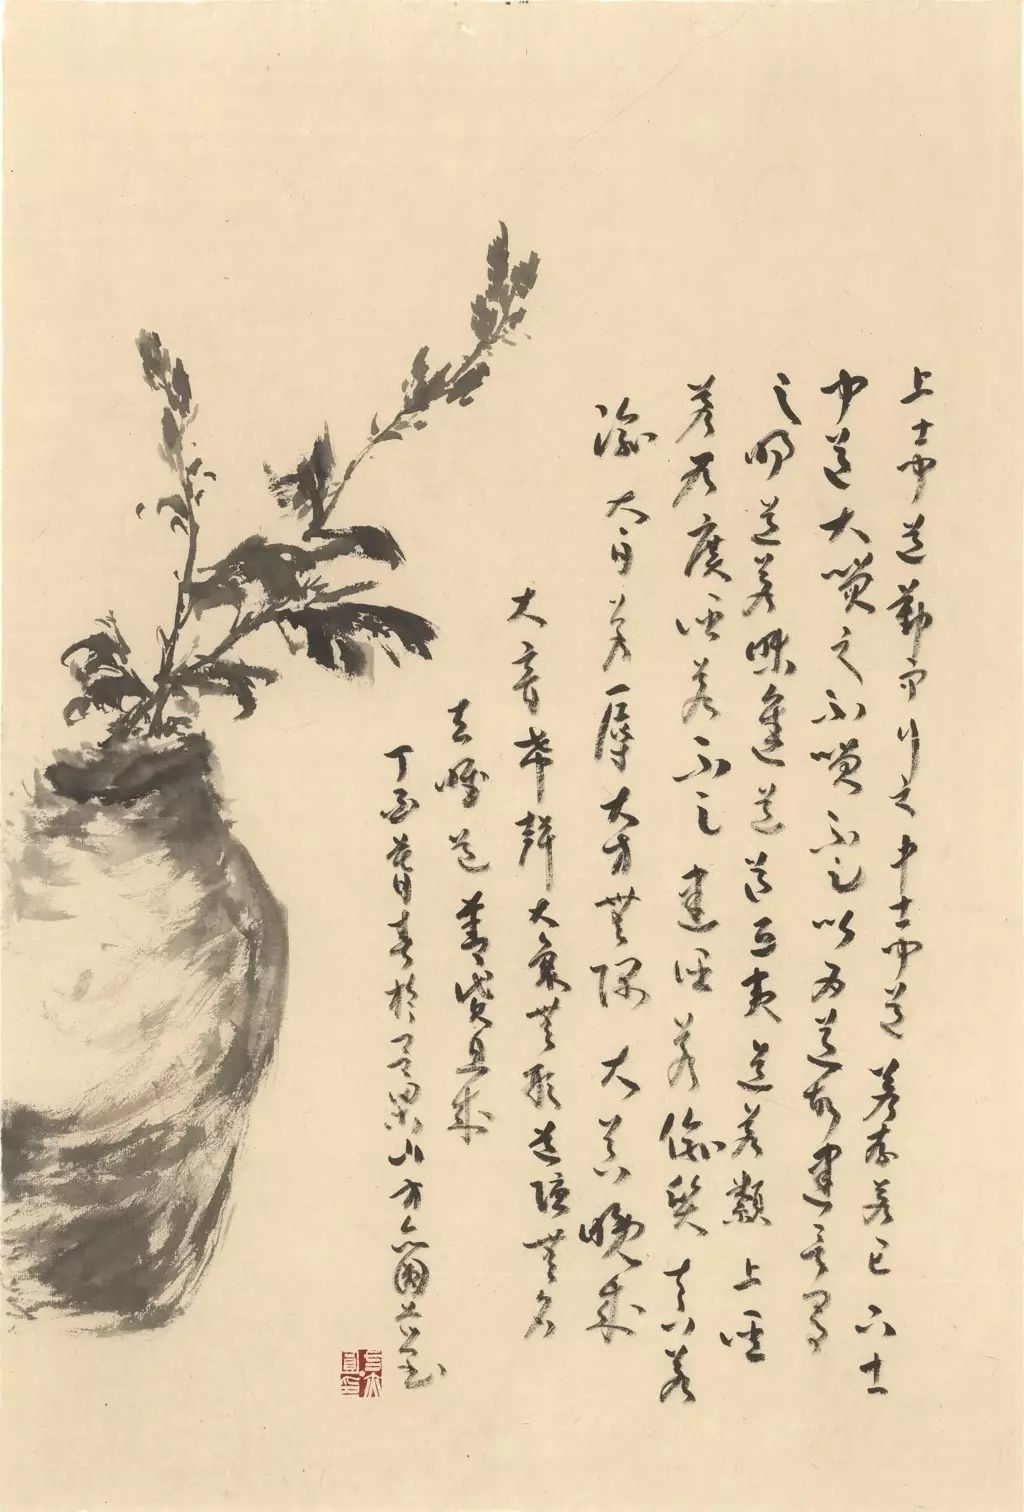 上士聞道勤而行之中士聞道若存若亡下士
聞道大笑之不笑不足以為道故建言有
之明道若昧進道若退夷道若纇上德
若谷廣德若不足建德若偷質真若
渝大白若辱大方無隅大器晚成
大音希聲大象無形道隱無名
夫唯道善貸且成
丁酉暮春於山方